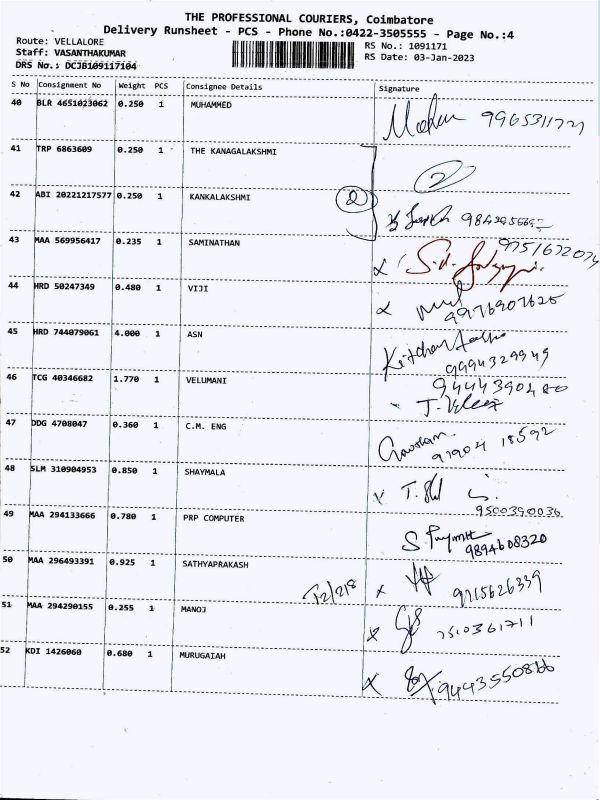 THE PROFESSIONAL COURIERS, Coimbatore
Delivery Runsheet - PCS - Phone No.:0422-3505555 - Page No.:4
Route: VELLALORE
RS No.: 1091171
Staff: VASANTHAKUMAR
RS Date: 03-Jan-2023
DRS No.: DCJB109117104
S No Consignment No Weight PCS Consignee Details Signature
40 BLR 4651023062 0.250 1 MUHAMMED
41 TRP 6863609 0.250 1 THE KANAGALAKSHMI
2
42 ABI 20221217577 0.250 1 KANKALAKSHMI 2
9751672074
43 MAA 569956417 0.235 1 SAMINATHAN
44 HRD 50247349 0.480 1 VIJI
9976907625
45 HRD 744079061 4.000 1 ASN
9994329949
46 TCG 40346682 1.770 1 VELUMANI
9444390480
47 DDG 4708047 0.360 1 C.M. ENG
Gowtham
97904 18592
48 SLM 310904953 0.850 1 SHAYMALA
9500390036
49 MAA 294133666 0.780 1 PRP COMPUTER
9894608320
50 MAA 296493391 0.925 1 SATHYAPRAKASH
12/218 9715626339
51 MAA 294290155 0.255 1 MANOJ
7510361711
52 KDI 1426060 0.680 1 MURUGAIAH
9443550866